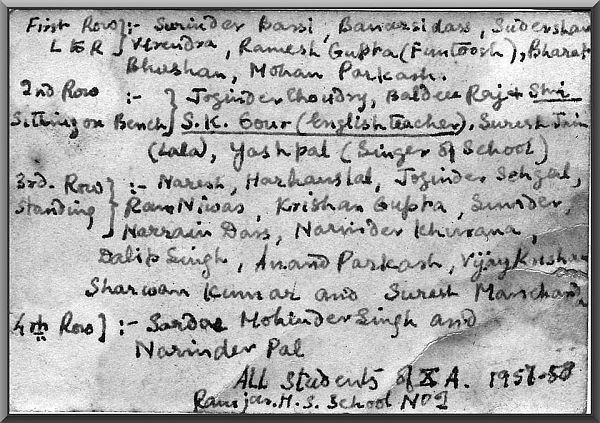 First Row L to R :- Surinder Bassi, Banarsidass, Sudershan
Virendra, Ramesh Gupta (Funtoosh), Bharat
Bhushan, Mohan Parkash.
2nd Row Sitting on Bench :- Joginder Chowdry, Baldev Raj + Shri
S.K. Gour (English teacher), Suresh Jain
(Lala), Yashpal (Singer of School)
3rd. Row Standing :- Naresh, Harbanslal, Joginder Sehgal,
Ram Niwas, Krishan Gupta, Surinder,
Narrain Dass, Narinder Khurana,
Dalip Singh, Anand Parkash, Vijay Krishan
Sharwan Kumar and Suresh Manchanda
4th Row :- Sardar Mohinder Singh and
Narinder Pal
All Students of X A. 1957-58
Ramjas. H. S. School No 1